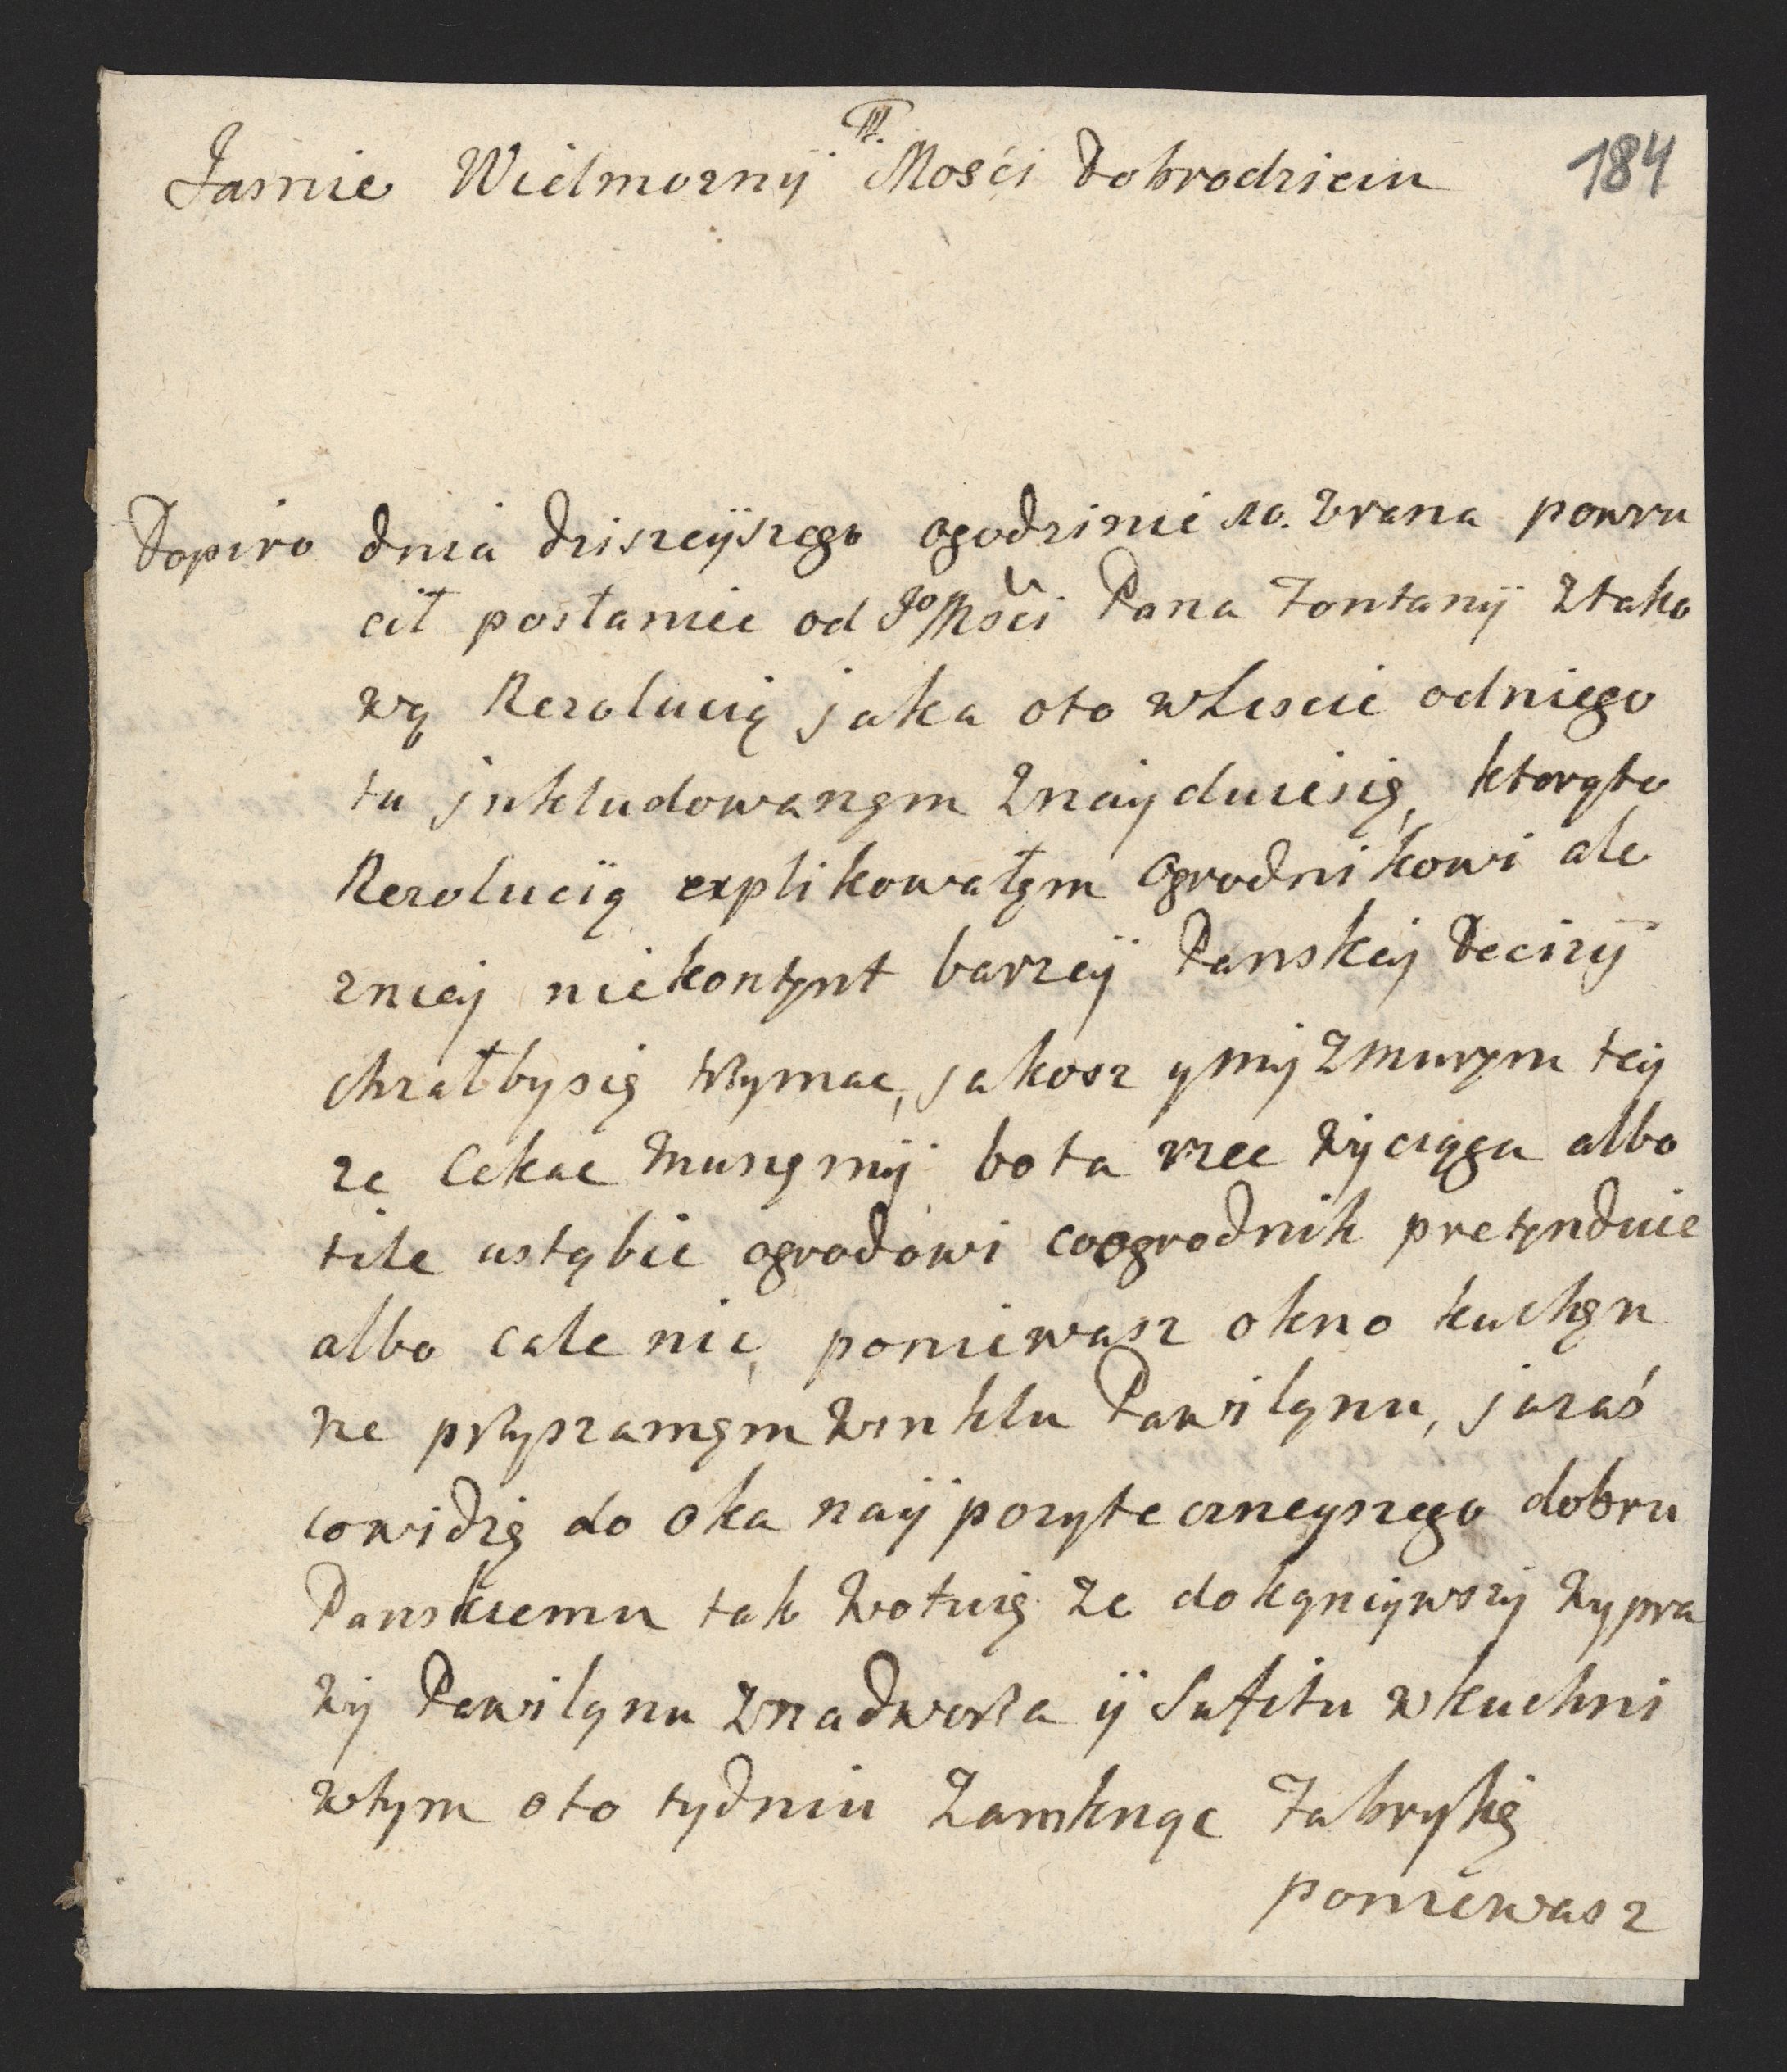 III.
Jasnie Wielmozny Mości Dobrodzieiu 184
Dopiro dnia dziszeÿszego ogodzinie 10. zrana powru
cił posłaniec od JoMości Pana Fontanÿ ztako
wą Rezolucią jaka oto wLiscie odniego
tu jnkludowanym znaÿduiesię, ktorąto
Rezolucÿą explikowałęm ogrodnikowi ale
zniej niekontęnt barzeÿ Panskieÿ Decizÿ
chzałbysię trzymac, jakosz ymÿ zmuręm teÿ
ze Cekac musięmÿ bo ta rzec wÿciąga albo
tile ustąbic ogrodowi coogrodnik pretęnduie
albo cale nic, poniewasz okno kuchęn
ne przyszamęm winklu Pawiląnu, jazaś
cowidzę do oka naÿpozytecznieyszego dobru
Panskiemu tak wotuię ze dokąnciÿwszÿ wypra
wÿ Pawiląnu znadworza ÿ Sufitu wkuchni
wtym oto tydniu zamknąc Fabrykę
poniewasz